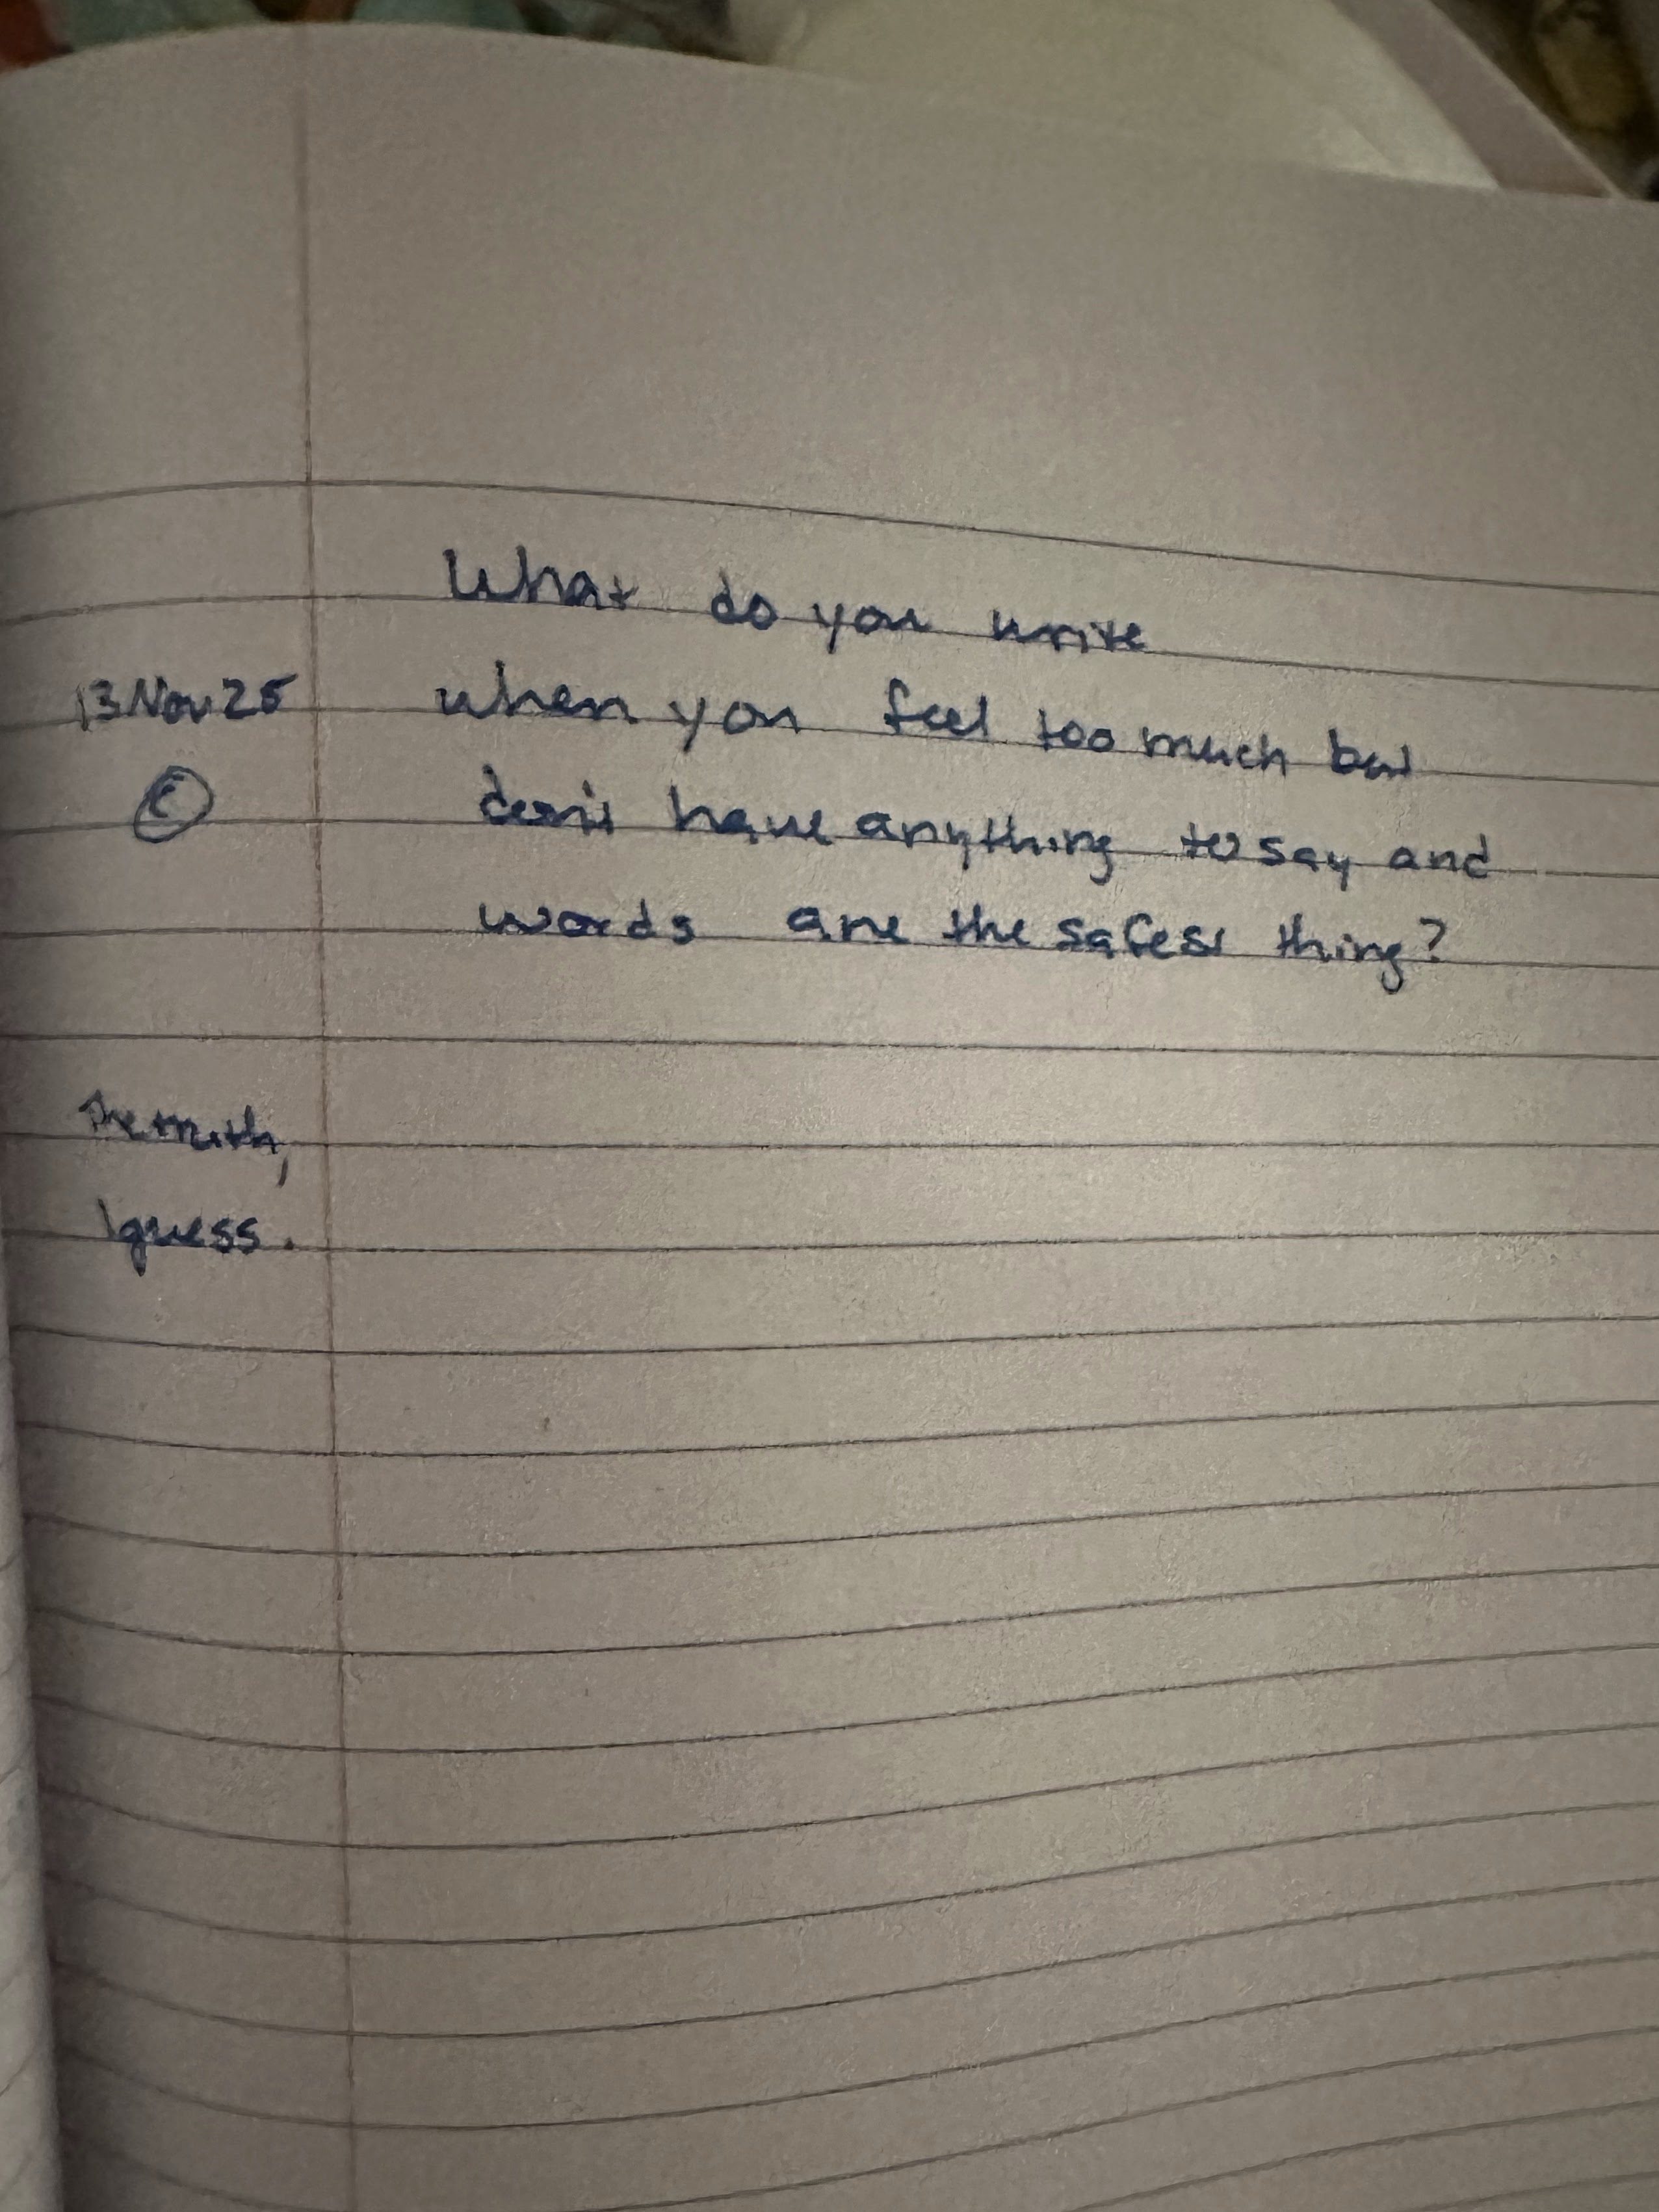 What do you write
13 Nov 25 when you feel too much but
© don't have anything to say and
words are the safest thing?
The truth,
I guess.